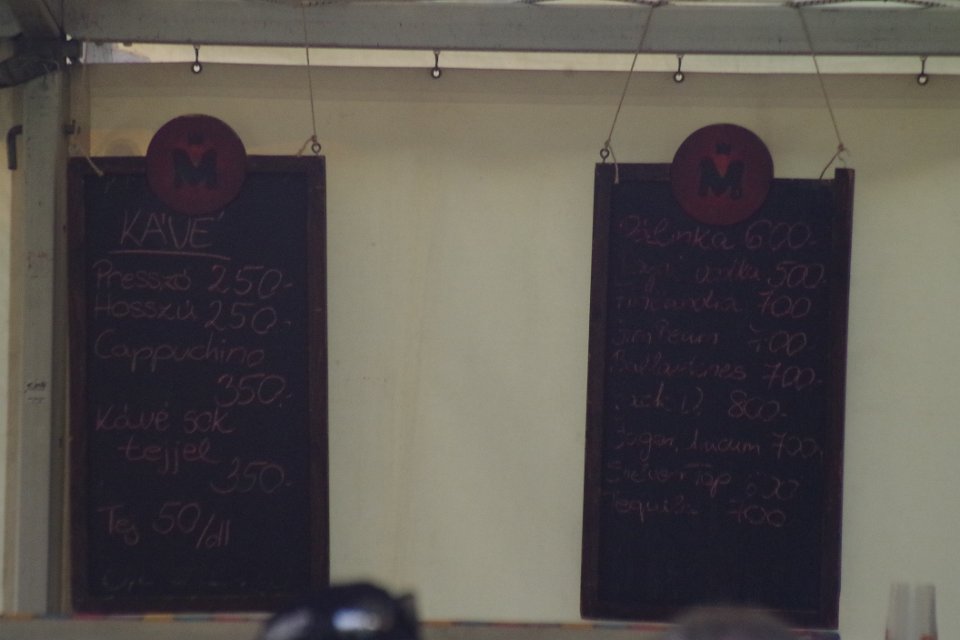 M
KÁVÉ
Presszó 250.-
Hosszú 250.-
Cappuchino
350.-
Kávé sok
tejjel
350.-
Tej 50/dl
M
Pálinka 600.-
500.-
Finlandia 700
Jim Beam 700
Ballantines 700.-
800.-
700.-
Tequila 700